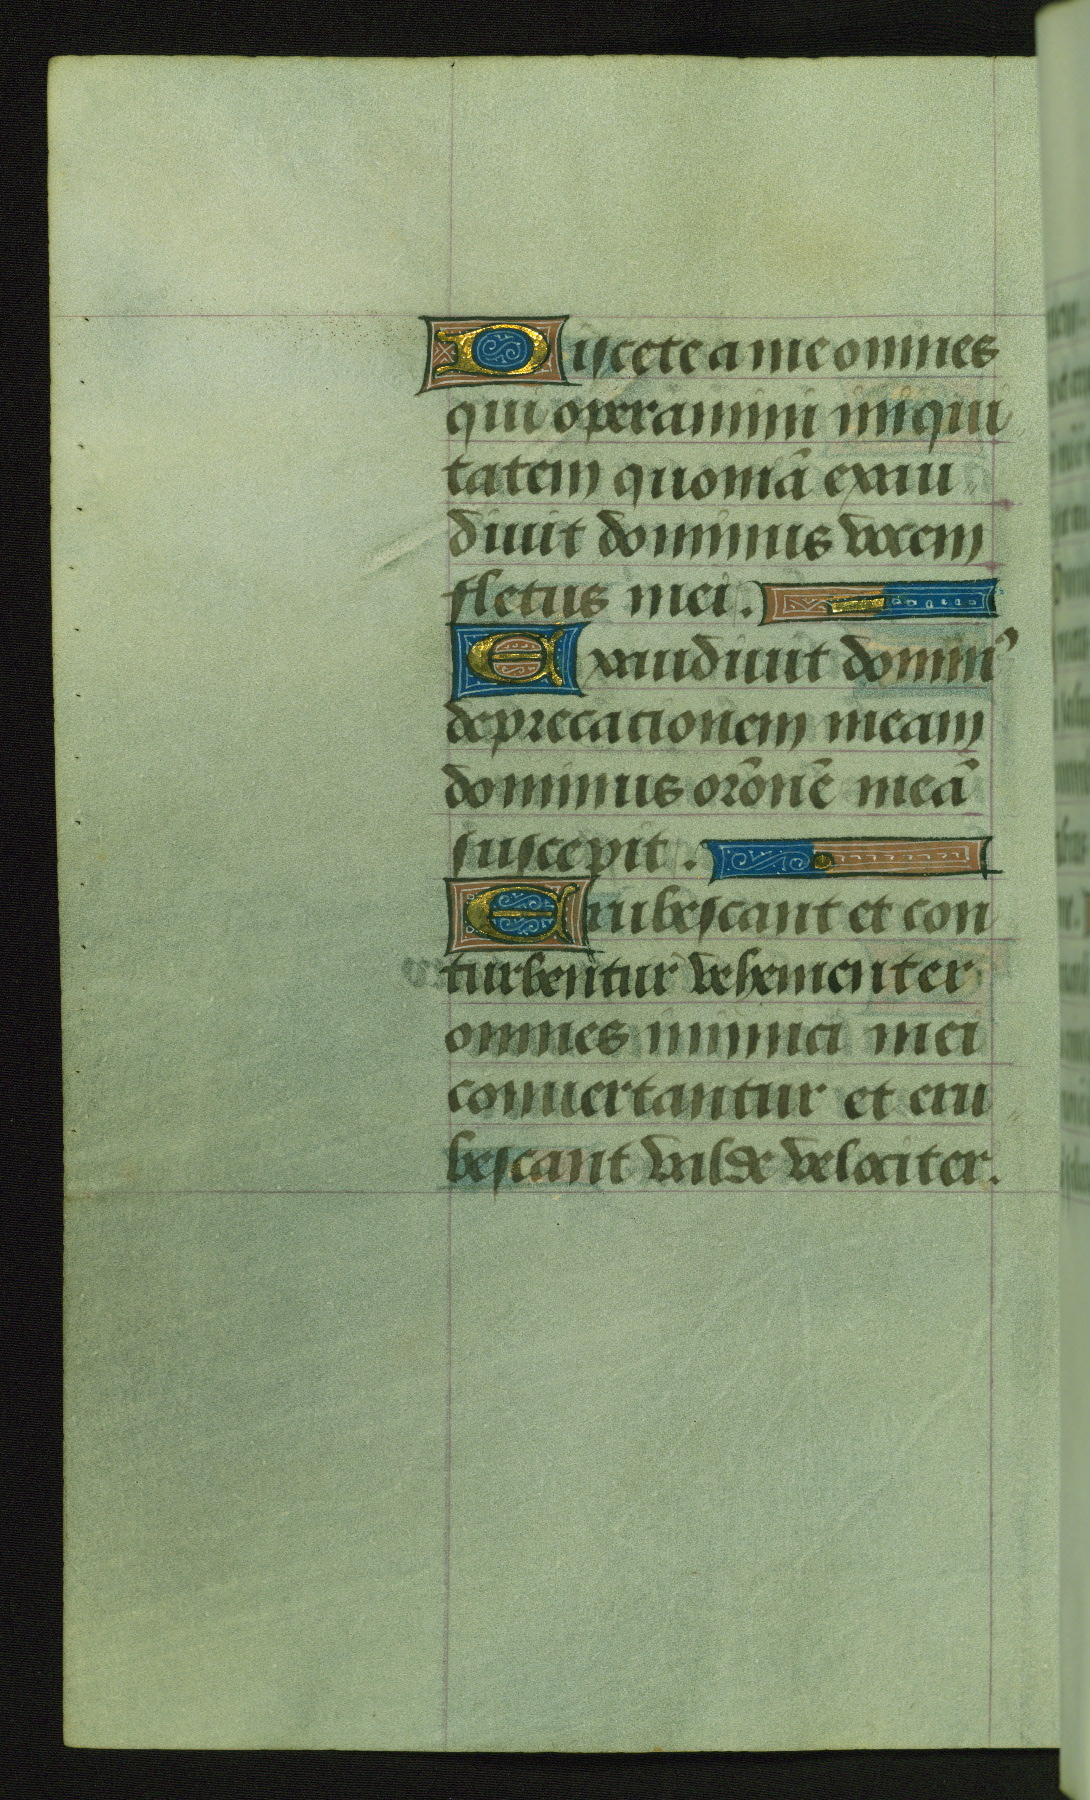 Discete a me omnes
qui operamini iniqui
tatem quoniā exau
diuit dominus vocem
fletus mei.
Exaudiuit domin᾽
deprecationem meam
dominus orōnē meā
suscepit.
Erubescant et con
turbentur vehementer
omnes inimici mei
conuertantur et eru
bescant valde velociter.